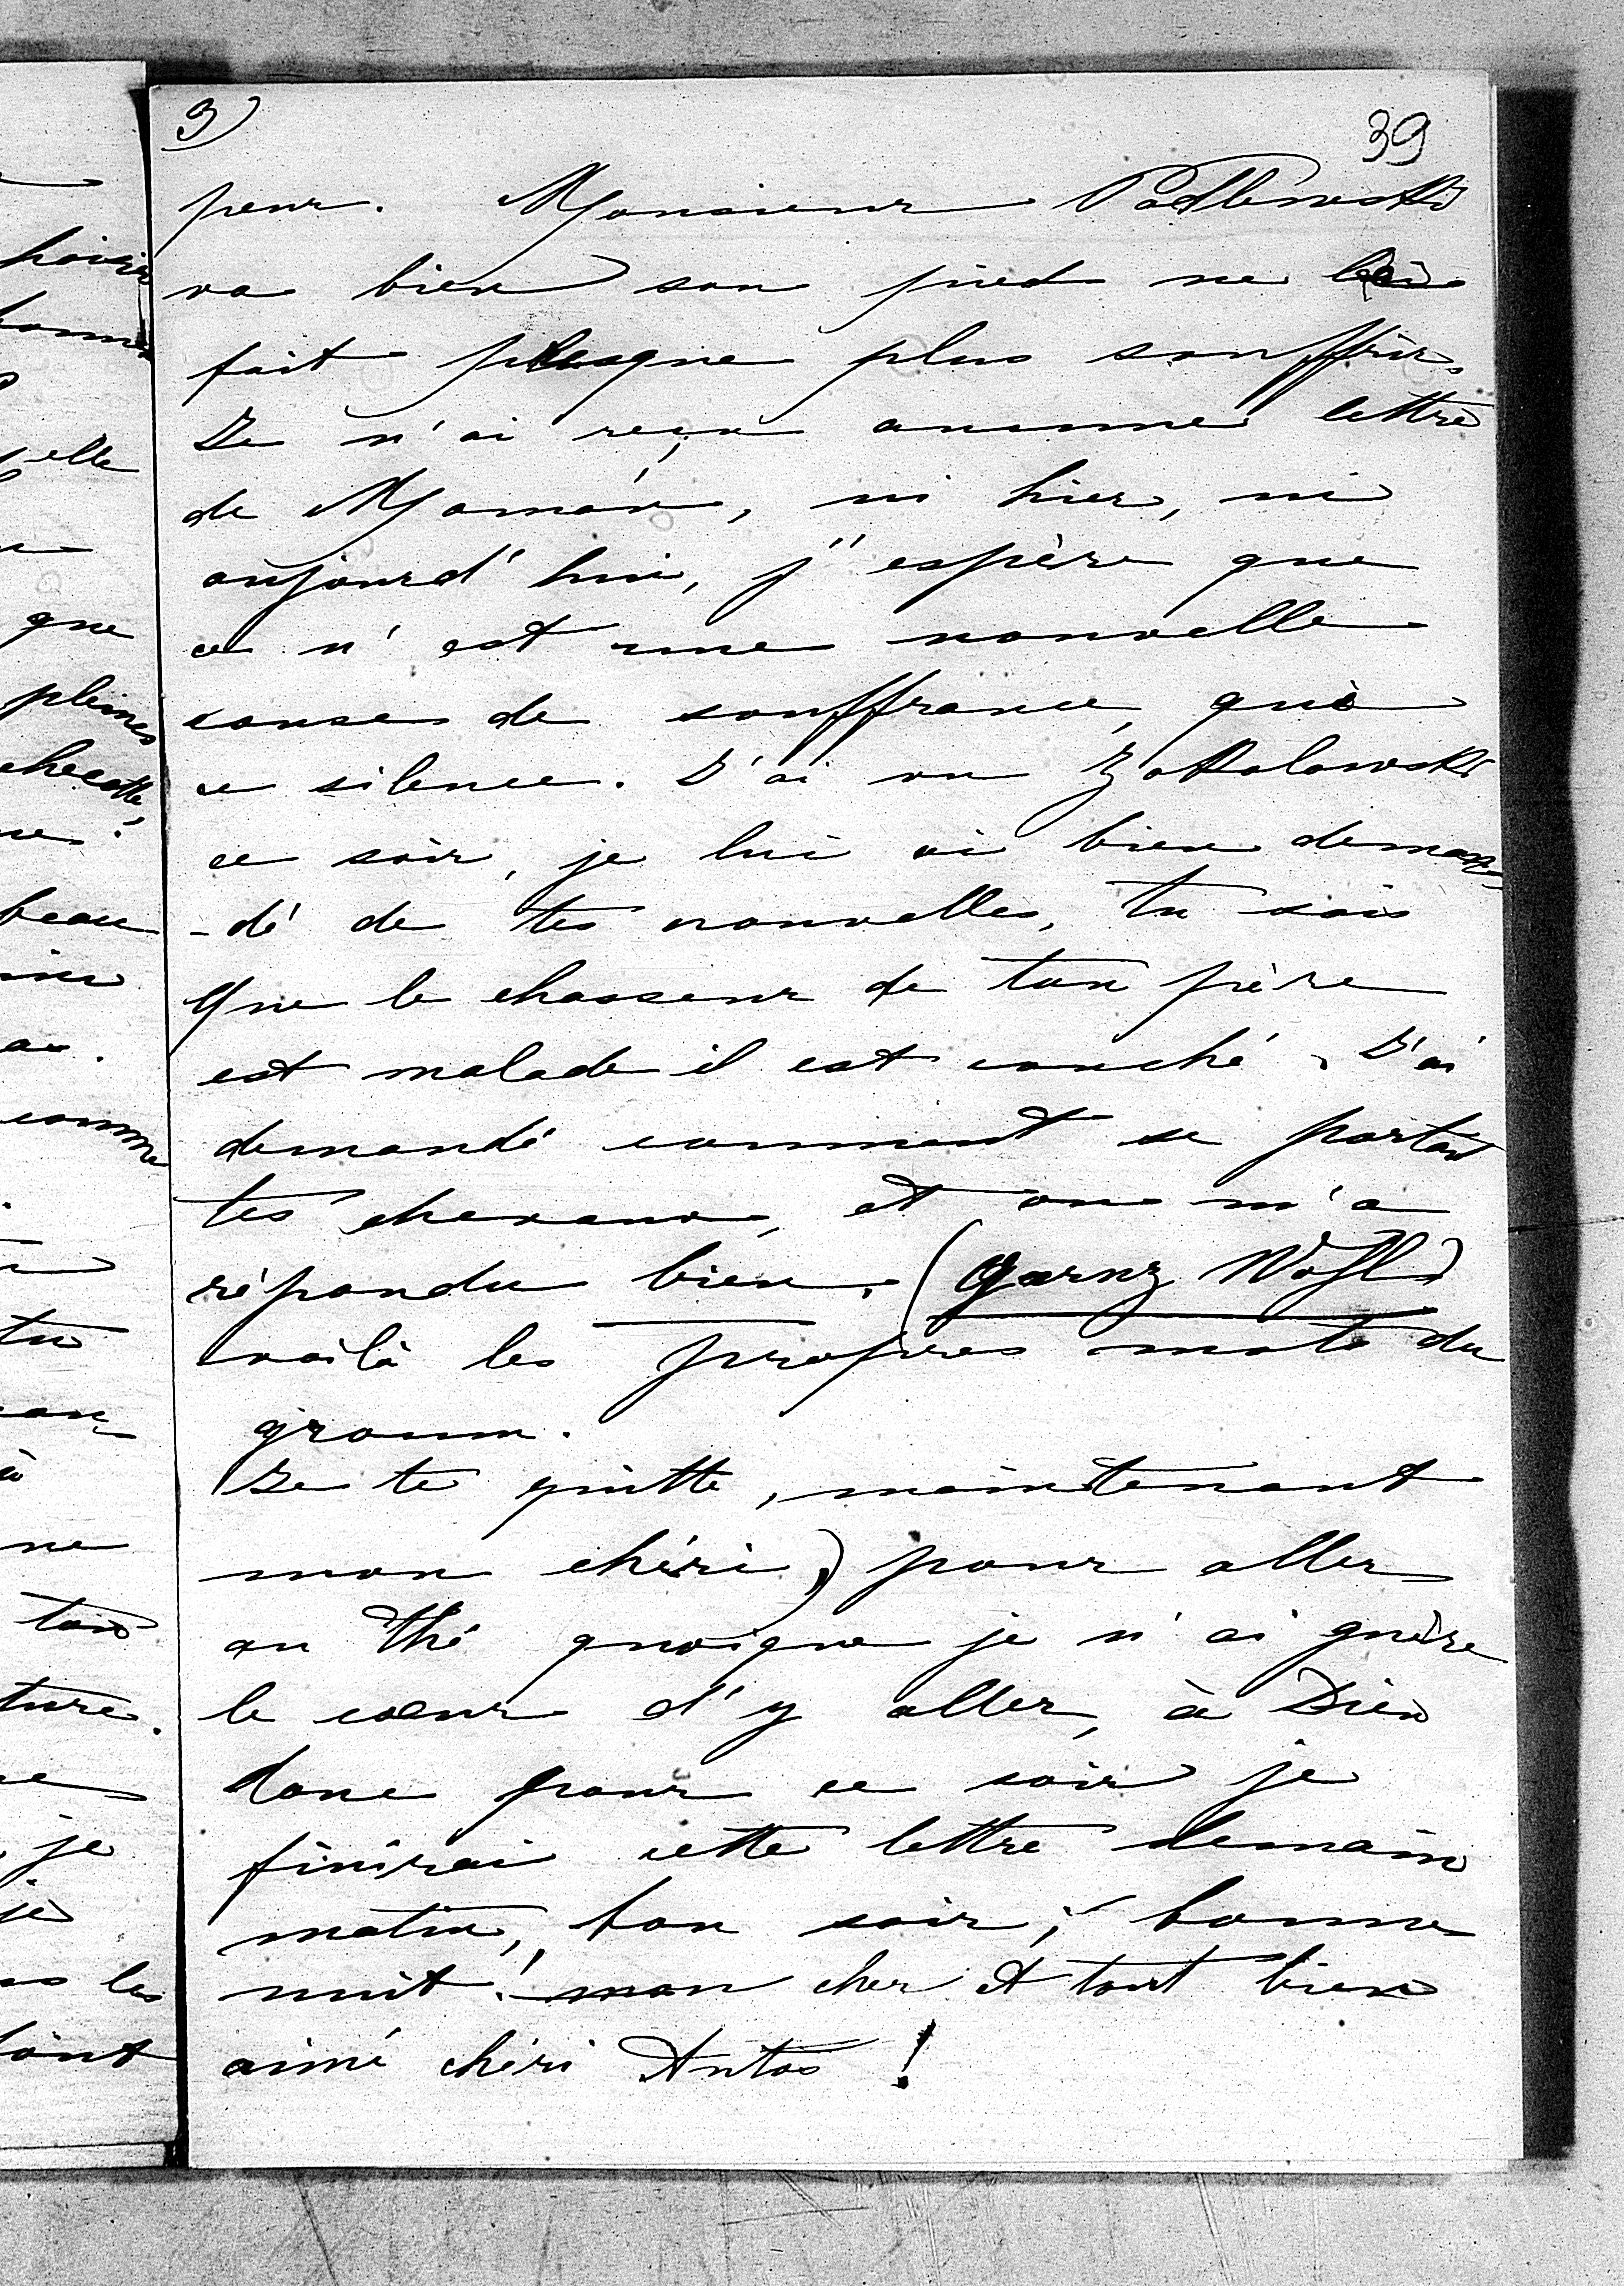 3)
39
peur. Monsieur Podlewski
va bien son pied ne lui
fait presque plus souffrir,
Je n'ai reçu aucune lettre
de Maman, ni hier, ni
aujourd'hui, j'espère que
ce n'est une nouvelle
cause de souffrance, que
ce silence. J'ai vu
ce soir, je lui ai bien deman-
-dé de tes nouvelles, tu sais
que le chasseur de ton père
est malade il est couché. J'ai
demandé comment se portait
tes chevaux, et on m'a
répondu bien, (Ganz Wohl)
voilà les propres mots du
groum.
Je te quitte, maintenant
mon chéri, pour aller
au thé quoique je n'ai guère
le cœur d'y aller, à Dieu
donc pour ce soir je
finirai cette lettre demain
matin, bon soir, bonne
nuit! mon cher et tout bien
aimé chéri Antos!